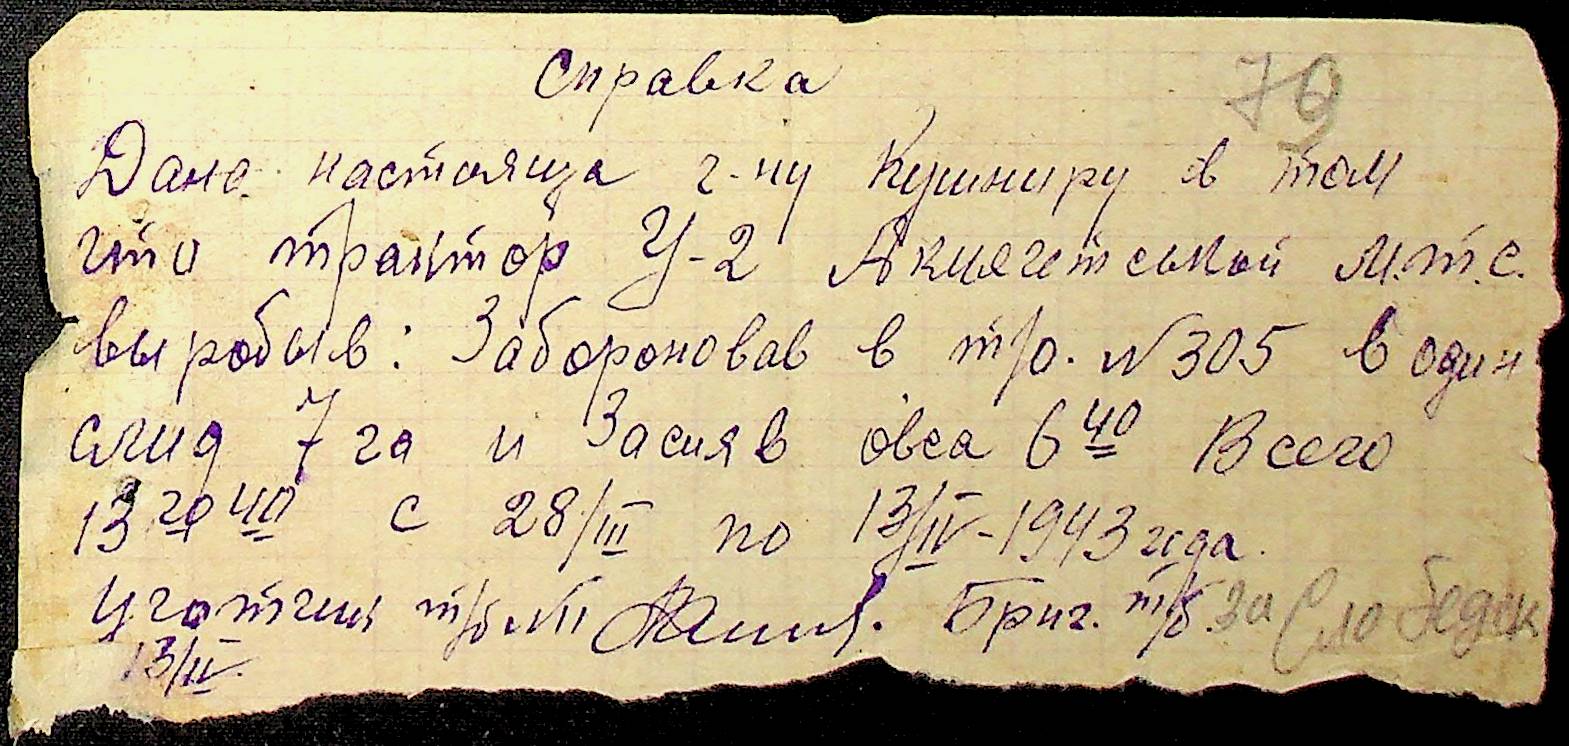 Справка
79
Дана настояща г-ну Кушниру в том
что трактор У-2 Акмечетськой м.т.с.
выробыв: Забороновав в т/о. №305 в один
слид 7 га и Засияв овса 6 40 Всего
13 га 40 с 28/III по 13/IV-1943 года.
Учотчик т/б №11 Бриг. т/б. За
13/IV.